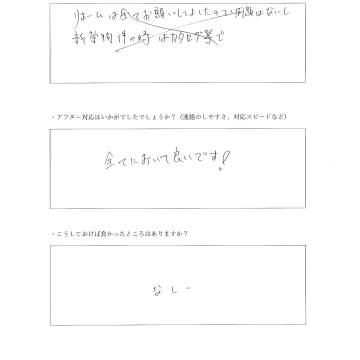 リホームは全てお願いしてましたので問題はないし
新築物件の時は
・アフター対応はいかがでしたでしょうか？（連絡のしやすさ、対応スピードなど）
全てにおいて良いです!
・こうしておけば良かったところはありますか？
なしー